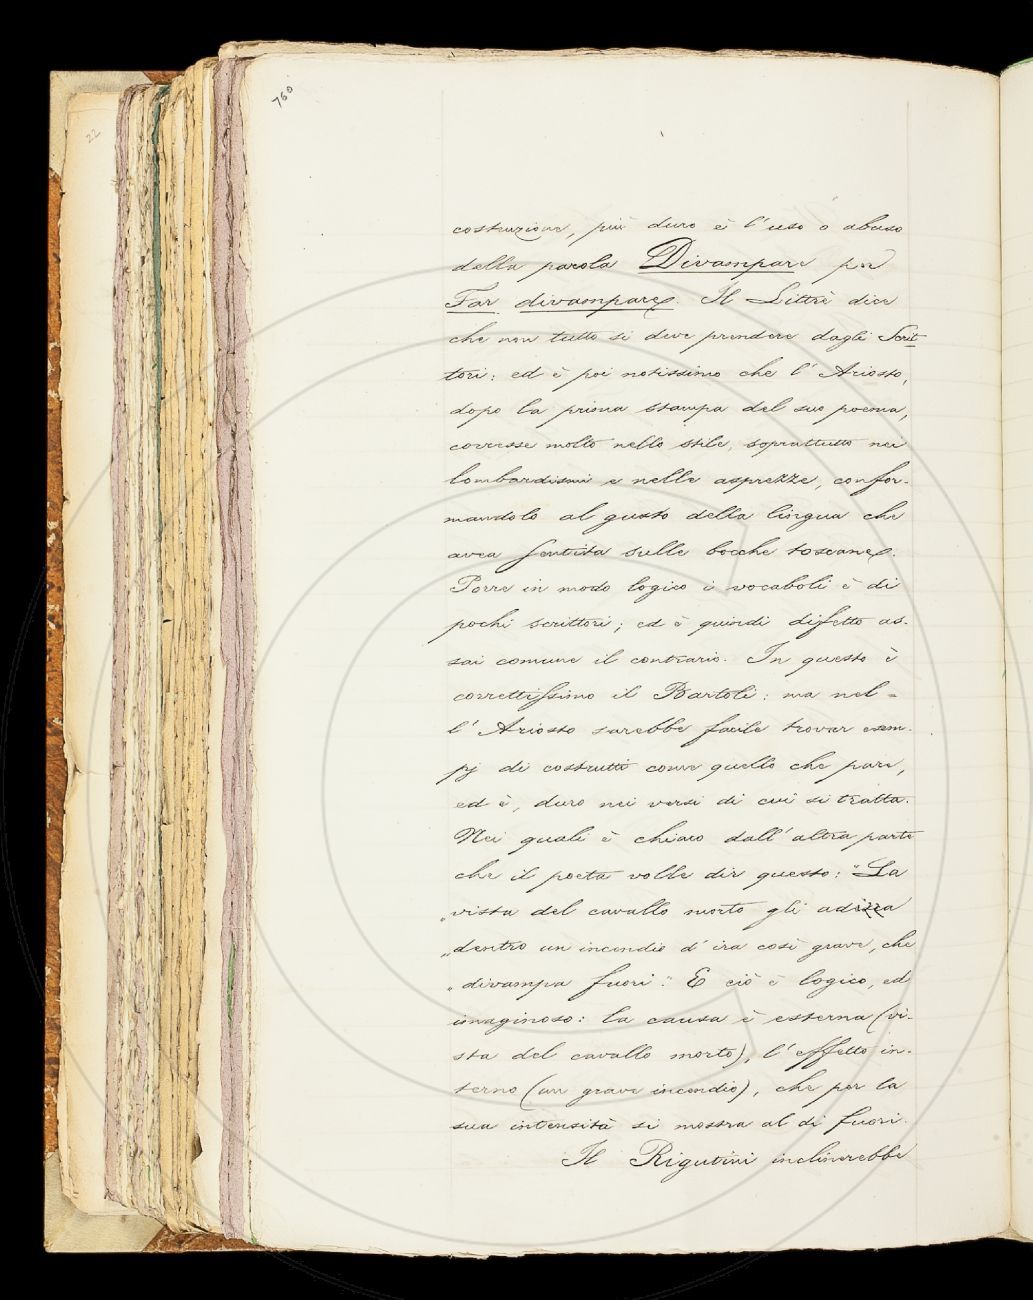 760
22
costruzione, più duro è l'uso o abuso
della parola Divampare per
Far divampare. Il Littré dice
che non tutto si deve prendere dagli Scrit-
tori: ed è poi notissimo che l'Ariosto,
dopo la prima stampa del suo poema,
corresse molto nello stile, soprattutto nei
lombardismi e nelle asprezze, confor-
mandolo al gusto della lingua che
avea sentita sulle bocche toscane.
Porre in modo logico i vocaboli è di
pochi scrittori; ed è quindi difetto as-
sai comune il contrario. In questo è
correttissimo il Bartoli: ma nel-
l'Ariosto sarebbe facile trovar esem-
pj di costrutti come quello che pare,
ed è, duro nei versi di cui si tratta.
Nei quali è chiaro dall'altra parte
che il poeta volle dir questo: "La
„vista del cavallo morto gli adizza
„dentro un incendio d'ira così grave, che
„divampa fuori." E ciò è logico, ed
imaginoso: la causa è esterna (vi-
sta del cavallo morto), l'effetto in-
terno (un grave incendio), che per la
sua intensità si mostra al di fuori.
Il Rigutini inclinerebbe